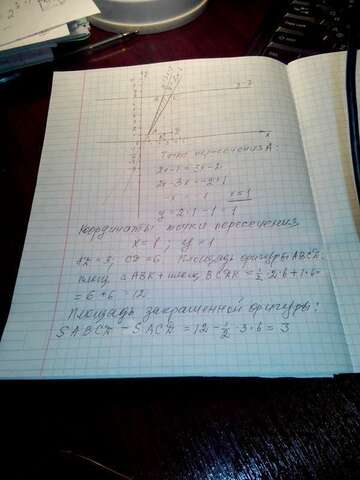 y
x
Точка пересечения A:
2x-1=3x-2
2x-3x=-2+1
-x=-1 x=1
y=2·1-1=1
Координаты точки пересечения
x=1; y=1
AD=3; CD=6 Площадь фигуры ABCD:
площ. △ABK+площ. BCDK=½·2·6+1·6=
=6+6=12
Площадь закрашенной фигуры:
S ABCD - S ACD = 12 - ½·3·6 = 3